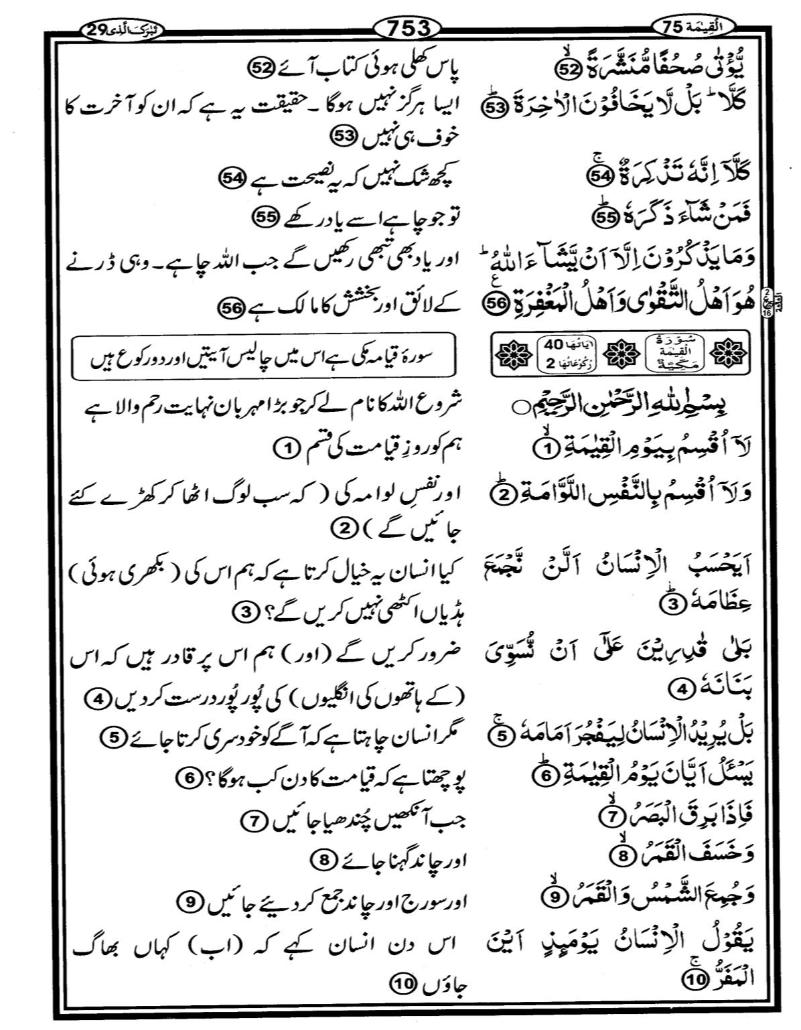 اَلْقِيٰمَة 75
753
تَبٰرَكَ الَّذِی 29
يُّؤْتٰى صُحُفًا مُّنَشَّرَةً ۙ 52
پاس کھلی ہوئی کتاب آئے 52
كَلَّا ؕ بَلْ لَّا يَخَافُوْنَ الْاٰخِرَةَ ؕ 53
ایسا ہرگز نہیں ہوگا ۔ حقیقت یہ ہے کہ ان کو آخرت کا
خوف ہی نہیں 53
كَلَّاۤ اِنَّهٗ تَذْكِرَةٌ ۚ 54
کچھ شک نہیں کہ یہ نصیحت ہے 54
فَمَنْ شَآءَ ذَكَرَهٗ ؕ 55
تو جو چاہے اسے یاد رکھے 55
وَمَا يَذْكُرُوْنَ اِلَّاۤ اَنْ يَّشَآءَ اللّٰهُ ؕ
هُوَ اَهْلُ التَّقْوٰى وَاَهْلُ الْمَغْفِرَةِ 56 ع
اور یاد بھی تبھی رکھیں گے جب اللہ چاہے۔ وہی ڈرنے
کے لائق اور بخشش کا مالک ہے 56
2
16
سُوْرَةُ الْقِيٰمَة مَكِّيَّةٌ
اٰيَاتُهَا 40
رُكُوْعَاتُهَا 2
سورۂ قیامہ مکی ہے اس میں چالیس آیتیں اور دو رکوع ہیں
بِسْمِ اللّٰهِ الرَّحْمٰنِ الرَّحِيْمِ ○
شروع اللہ کا نام لے کر جو بڑا مہربان نہایت رحم والا ہے
لَاۤ اُقْسِمُ بِيَوْمِ الْقِيٰمَةِ ۙ 1
ہم کو روزِ قیامت کی قسم 1
وَلَاۤ اُقْسِمُ بِالنَّفْسِ اللَّوَّامَةِ ؕ 2
اور نفسِ لوامہ کی ( کہ سب لوگ اٹھا کر کھڑے کئے
جائیں گے ) 2
اَيَحْسَبُ الْاِنْسَانُ اَلَّنْ نَّجْمَعَ
عِظَامَهٗ ؕ 3
کیا انسان یہ خیال کرتا ہے کہ ہم اس کی ( بکھری ہوئی )
ہڈیاں اکٹھی نہیں کریں گے؟ 3
بَلٰى قٰدِرِيْنَ عَلٰۤى اَنْ نُّسَوِّىَ
بَنَانَهٗ 4
ضرور کریں گے ( اور ) ہم اس پر قادر ہیں کہ اس
( کے ہاتھوں کی انگلیوں ) کی پُور پُور درست کر دیں 4
بَلْ يُرِيْدُ الْاِنْسَانُ لِيَفْجُرَ اَمَامَهٗ ۚ 5
مگر انسان چاہتا ہے کہ آگے کو خود سری کرتا جائے 5
يَسْئَلُ اَيَّانَ يَوْمُ الْقِيٰمَةِ ؕ 6
پوچھتا ہے کہ قیامت کا دن کب ہوگا؟ 6
فَاِذَا بَرِقَ الْبَصَرُ ۙ 7
جب آنکھیں چُندھیا جائیں 7
وَخَسَفَ الْقَمَرُ ۙ 8
اور چاند گہنا جائے 8
وَجُمِعَ الشَّمْسُ وَالْقَمَرُ ۙ 9
اور سورج اور چاند جمع کر دیئے جائیں 9
يَقُوْلُ الْاِنْسَانُ يَوْمَئِذٍ اَيْنَ
الْمَفَرُّ ۚ 10
اس دن انسان کہے کہ ( اب ) کہاں بھاگ
جاؤں 10